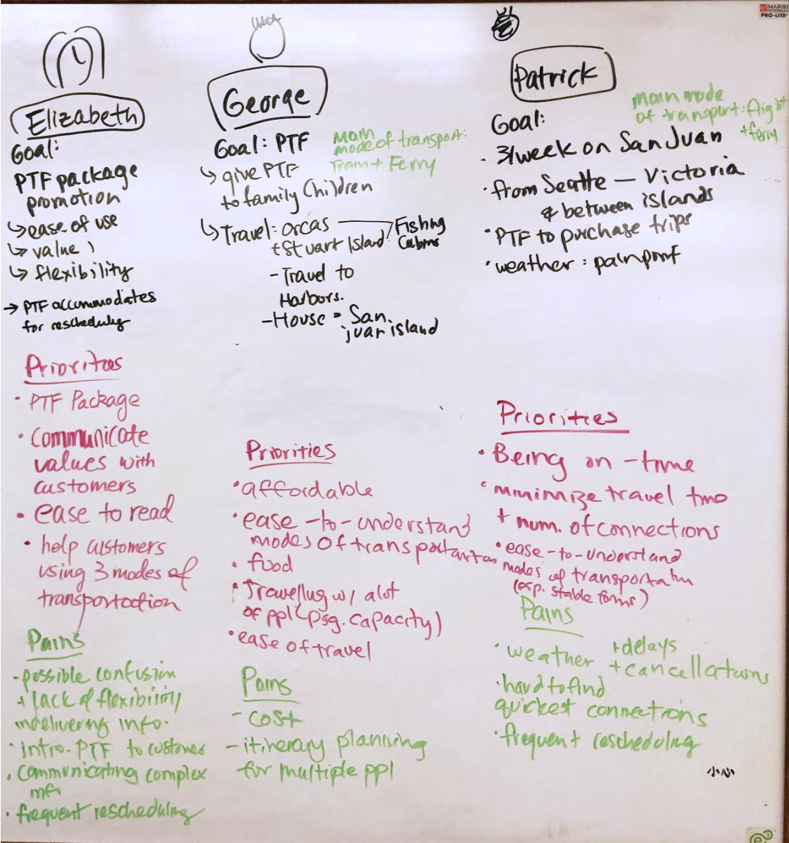 Elizabeth
Goal:
PTF package
promotion
↳ ease of use
↳ value
↳ flexibility
→ PTF accommodates
for reschedulg
Priorities
• PTF Package
• Communicate
values with
customers
• ease to read
• help customers
using 3 modes of
transportation
Pains
- possible confusion
+ lack of flexibility
indelivering info.
• intro. PTF to customer
• communicating complex
• frequent rescheduling
George
Goal: PTF
↳ give PTF
to family Children
Main
mode of transport:
Tram + Ferry
↳ Travel: orcas
+ Stuart Island
Fishing
Cabins
- Travel to
Harbors.
- House = San
juan island
Priorities
• affordable
• ease-to-understand
modes of transportation
• food
• Travelling w/ alot
of ppl (psg. capacity)
• ease of travel
Pains
- cost
- itinerary planning
for multiple ppl
Patrick
main mode
of transport: flight
+ ferry
Goal:
• 3/week on San Juan
• from Seattle — Victoria
& between islands
• PTF to purchase trips
• weather: painpoint
Priorities
• Being on-time
• minimize travel time
+ num. of connections
• ease-to-understand
modes of transportatn
(esp. stable forms)
Pains
• weather + delays
+ cancellations
• hard to find
quickest connections
• frequent rescheduling
MARKER
PRO-LITE